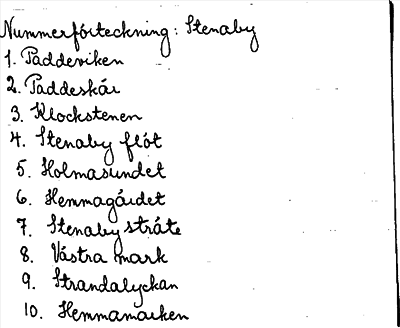 Nummerförteckning: Stenaby
1. Paddeviken
2. Paddeskär
3. Klockstenen
4. Stenaby flöt
5. Holmasundet
6. Hemmagärdet
7. Stenaby stráte
8. Västra mark
9. Strandalyckan
10. Hemmamarken